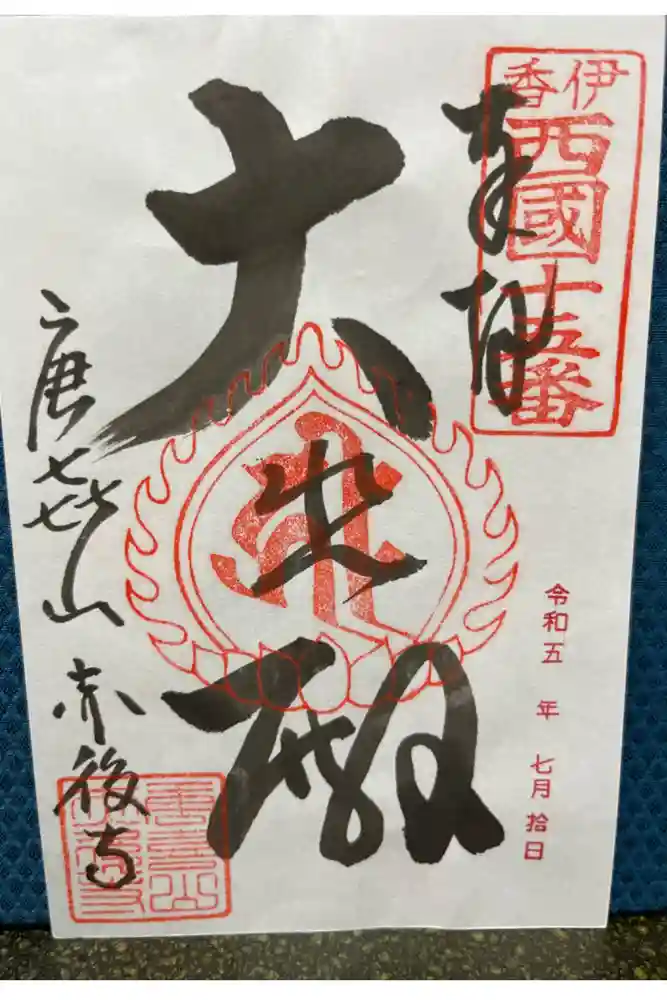 伊香
西國十五番
奉拝
大悲殿
令和五年 七月拾日
唐㐂山 赤後寺